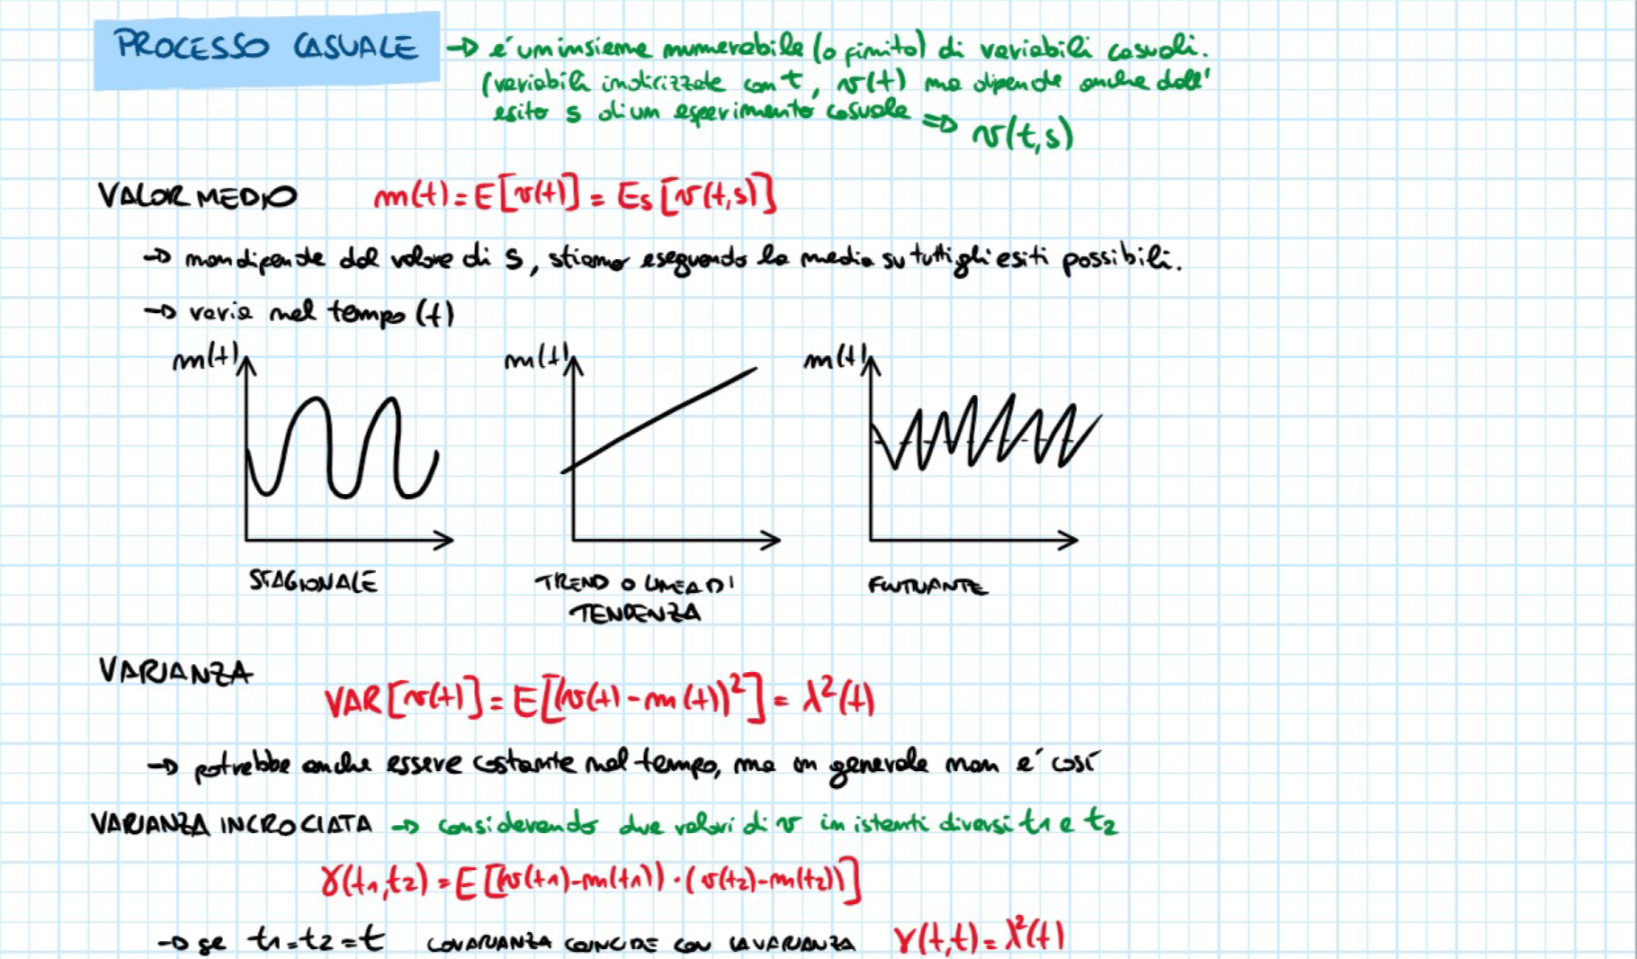 PROCESSO CASUALE → é un insieme numerabile (o finito) di variabili casuali.
(variabili indicizzate con t, v(t) ma dipende anche dall'
esito s di un esperimento casuale ⇒ v(t,s)
VALOR MEDIO m(t) = E[v(t)] = Es[v(t,s)]
→ non dipende dal valore di s, stiamo eseguendo la media su tutti gli esiti possibili.
→ varia nel tempo (t)
m(t) m(t) m(t)
STAGIONALE TREND O LINEA DI FLUTTUANTE
TENDENZA
VARIANZA
VAR[v(t)] = E[(v(t) - m(t))²] = λ²(t)
→ potrebbe anche essere costante nel tempo, ma in generale non é così
VARIANZA INCROCIATA → considerando due valori di v in istanti diversi t1 e t2
γ(t1,t2) = E[(v(t1)-m(t1))·(v(t2)-m(t2))]
→ se t1=t2=t COVARIANZA COINCIDE CON LA VARIANZA γ(t,t) = λ²(t)